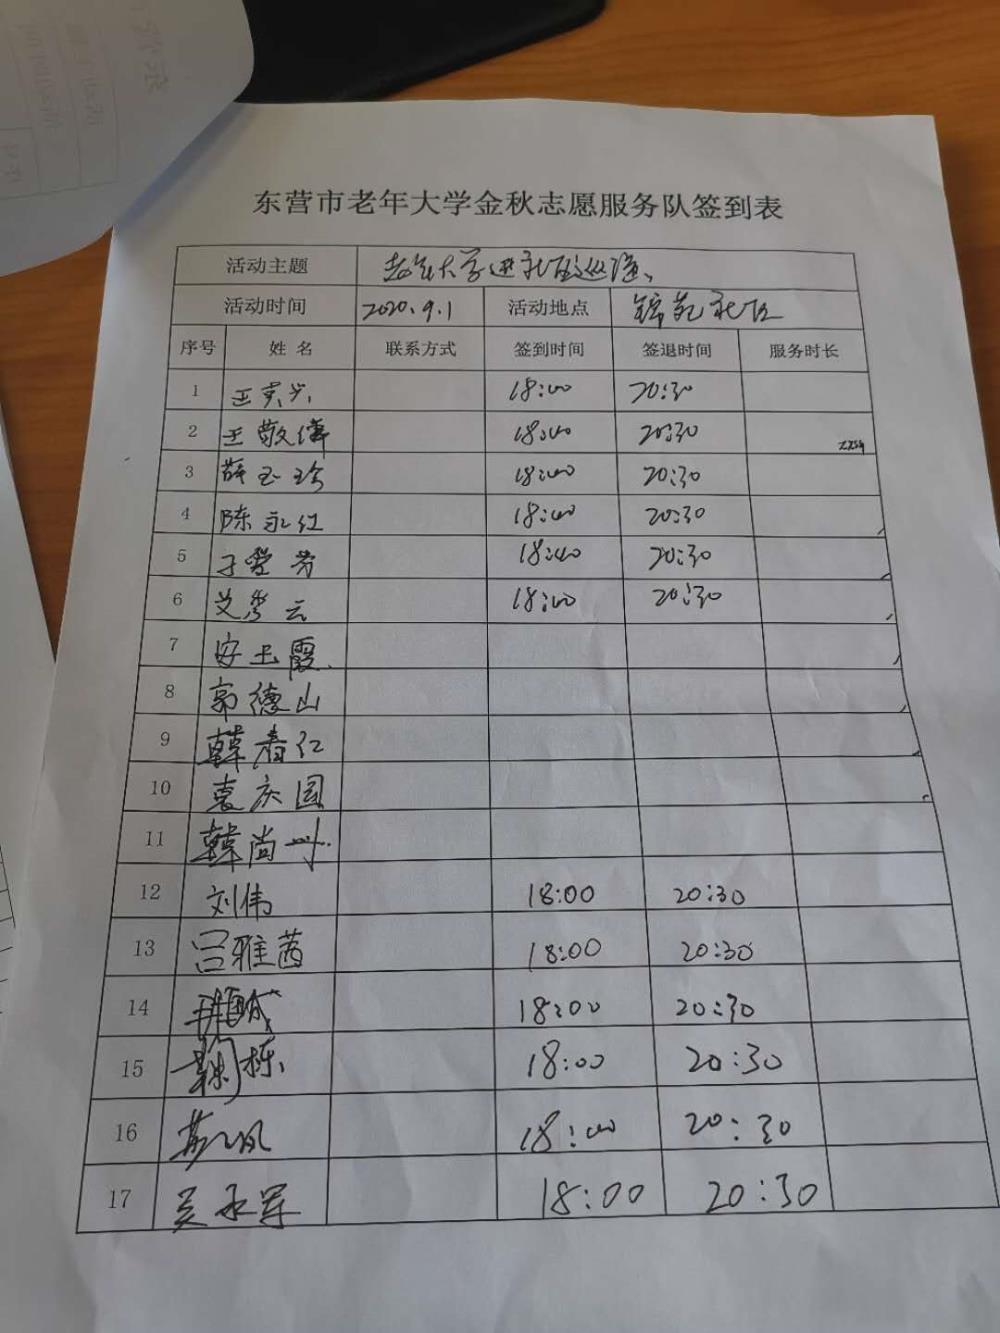 东营市老年大学金秋志愿服务队签到表
活动主题 老年大学进社区巡演
活动时间 2020.9.1 活动地点 锦苑社区
序号 姓名 联系方式 签到时间 签退时间 服务时长
1 王 18:00 20:30
2 王敬 18:00 20:30
3 薛玉珍 18:00 20:30
4 陈永红 18:00 20:30
5 于爱芳 18:00 20:30
6 秀云 18:00 20:30
7 安玉霞
8 郭德山
9 韩春红
10 袁庆国
11 韩尚
12 刘伟 18:00 20:30
13 吕雅茜 18:00 20:30
14 18:00 20:30
15 栋 18:00 20:30
16 18:00 20:30
17 吴永军 18:00 20:30